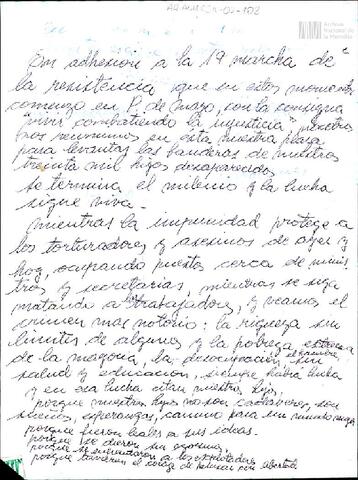 Archivo
Nacional de
la Memoria
En adhesion a la 19 marcha de
la resistencia que en estos momentos
comenzo en P. de Mayo, con la consigna
"vivir combatiendo la injusticia", nosotros
nos reunimos en esta nuestra plaza
para levantar las banderas de nuestros
treinta mil hijos desaparecidos
se termina el milenio y la lucha
sigue viva.
mientras la impunidad protege a
los torturadores y asesinos de ayer y
hoy, ocupando puestos cerca de minis
tros y secretarias, mientras se siga
matando a trabajadores, y veamos el
crimen mas notorio: la riqueza sin
limites de algunos y la pobreza extrema
de la mayoria, la desocupación, el hambre, sin
salud y educacion, siempre habrá lucha
y en esa lucha estan nuestros hijos,
porque nuestros hijos no son cadaveres, son
sueños, esperanzas, camino para un mundo mejor
porque fueron leales a sus ideas.
porque se dieron sin egoismo,
porque se enfrentaron a los explotadores
porque tuvieron el coraje de pelear por libertad